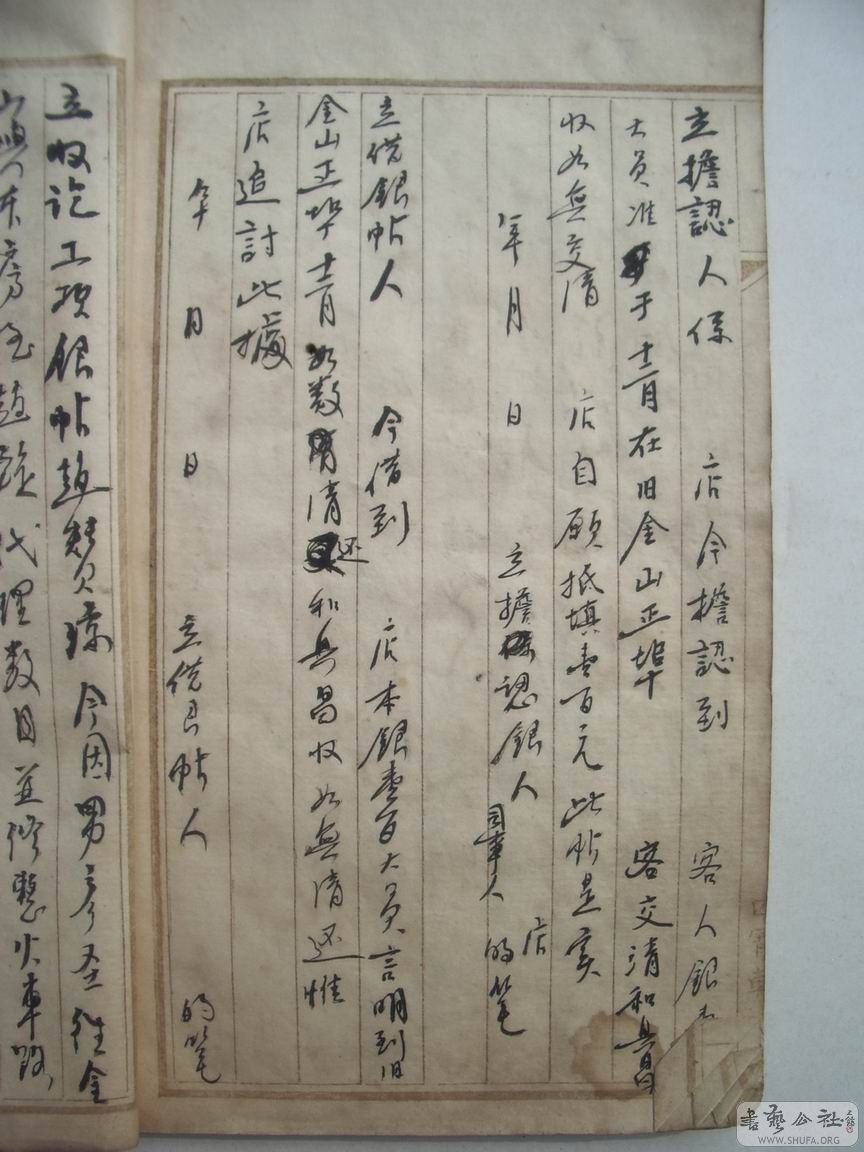 立擔認人係 店今擔認到 客人銀壹
大員准于十二月在旧金山正埠 客交清和興昌
收如無交清 店自願抵填壹百元此帖是實
年 月 日 立擔認銀人 司事人 店 的筆
立借銀帖人 今借到 店本銀壹百大員言明到旧
金山正埠十二月如数清还和興昌收如無清还惟
店追討此據
年 月 日 立借艮帖人 的筆
立收訖工項銀帖趙贊 今因男 往金
山 代理数目並修整火車路
書藝公社
WWW.SHUFA.ORG